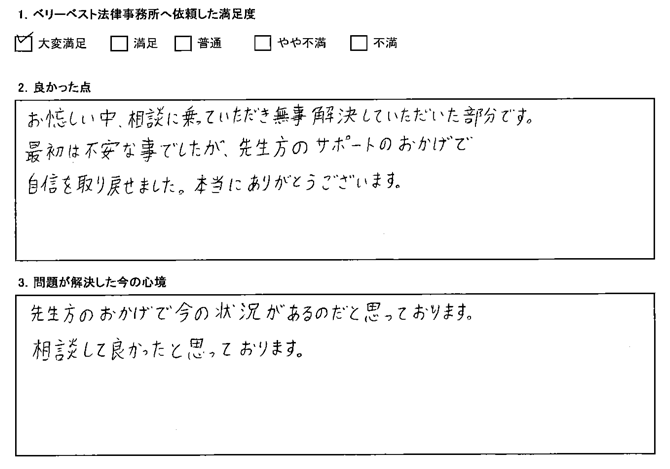 1. ベリーベスト法律事務所へ依頼した満足度
☑ 大変満足 □ 満足 □ 普通 □ やや不満 □ 不満
2. 良かった点
お忙しい中、相談に乗っていただき無事解決していただいた部分です。
最初は不安な事でしたが、先生方のサポートのおかげで
自信を取り戻せました。本当にありがとうございます。
3. 問題が解決した今の心境
先生方のおかげで今の状況があるのだと思っております。
相談して良かったと思っております。